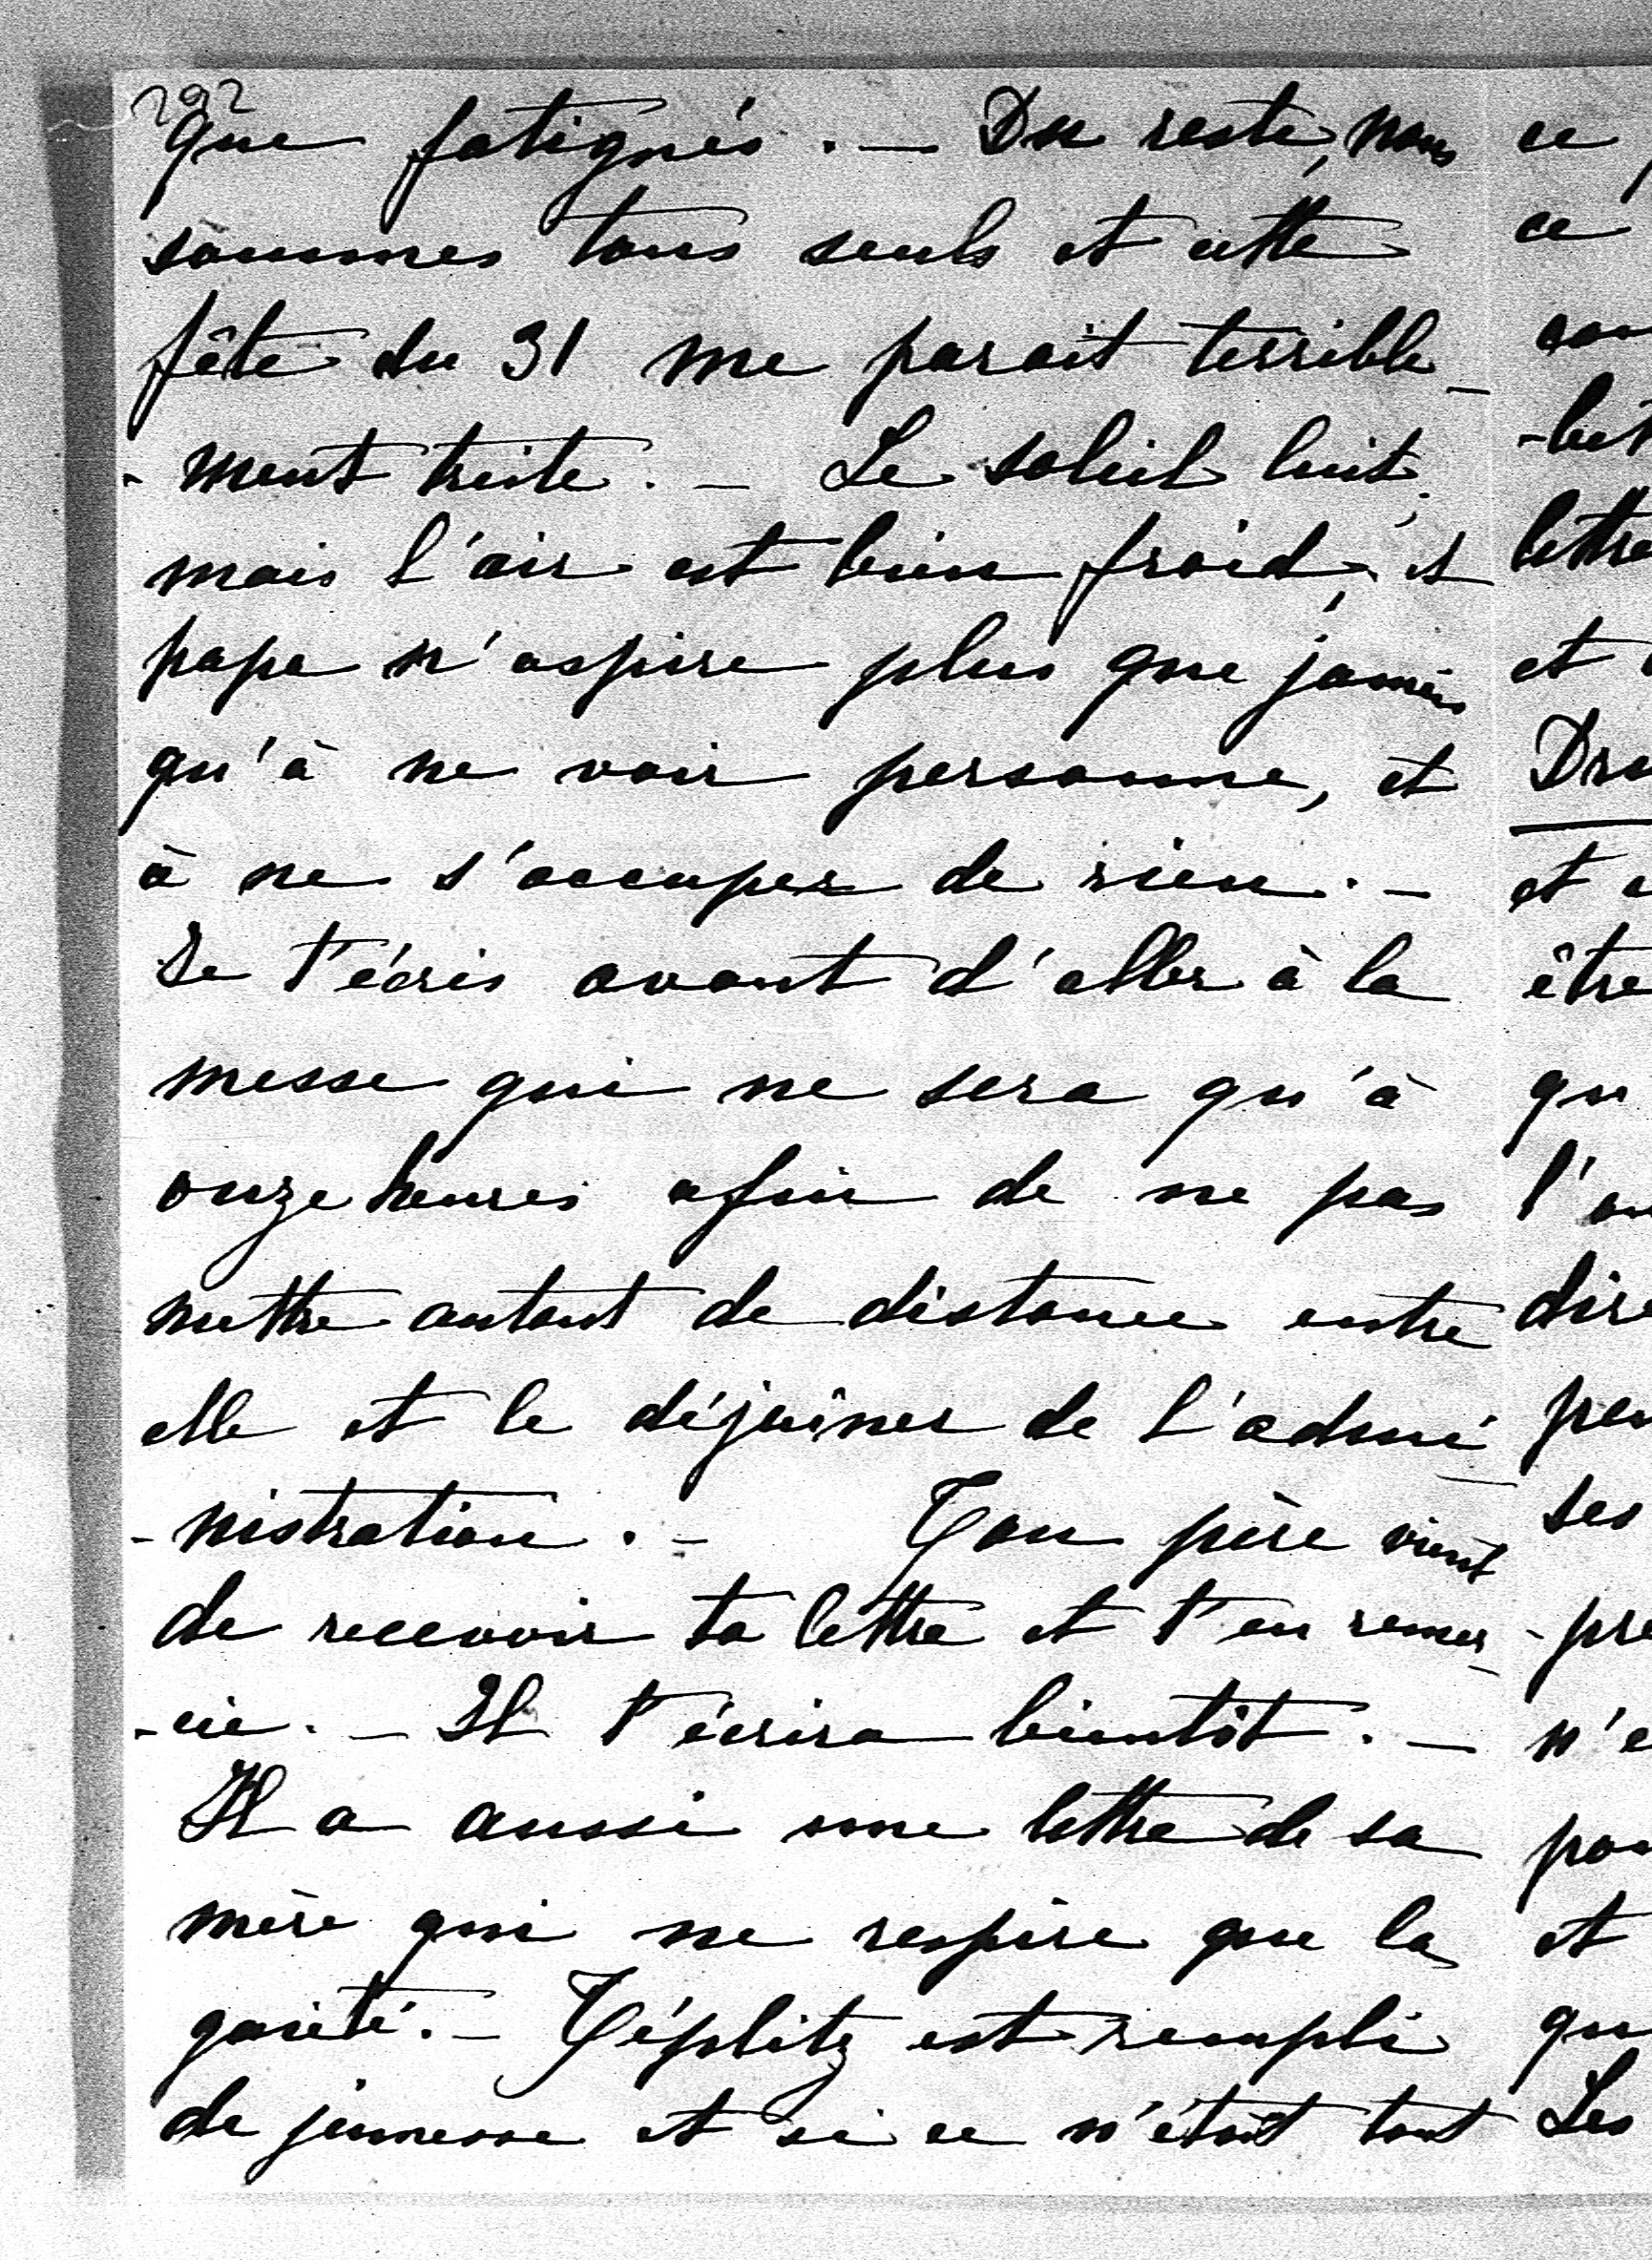 292
que fatigués. — Du reste, nous
sommes tous seuls et cette
fête du 31 me parait terrible-
-ment triste. — Le soleil luit,
mais l'air est bien froid, et
papa n'aspire plus que jamais
qu'à ne voir personne, et
à ne s'occuper de rien. —
Je t'écris avant d'aller à la
messe qui ne sera qu'à
onze heures afin de ne pas
mettre autant de distance entre
elle et le déjeûner de l'admi-
-nistration. — Ton père vient
de recevoir ta lettre et t'en remer-
-cie. — Il t'écrira bientôt. —
Il a aussi une lettre de sa
mère qui ne respire que la
gaieté. — Téplitz est rempli
de jeunesse et si ce n'était tout
ce
ce
lettre
et
et
être
qu
dire
ses
et
Les